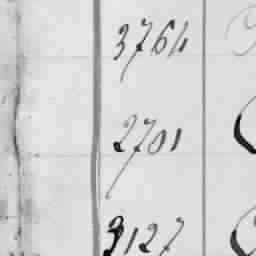 3764
2701
3127